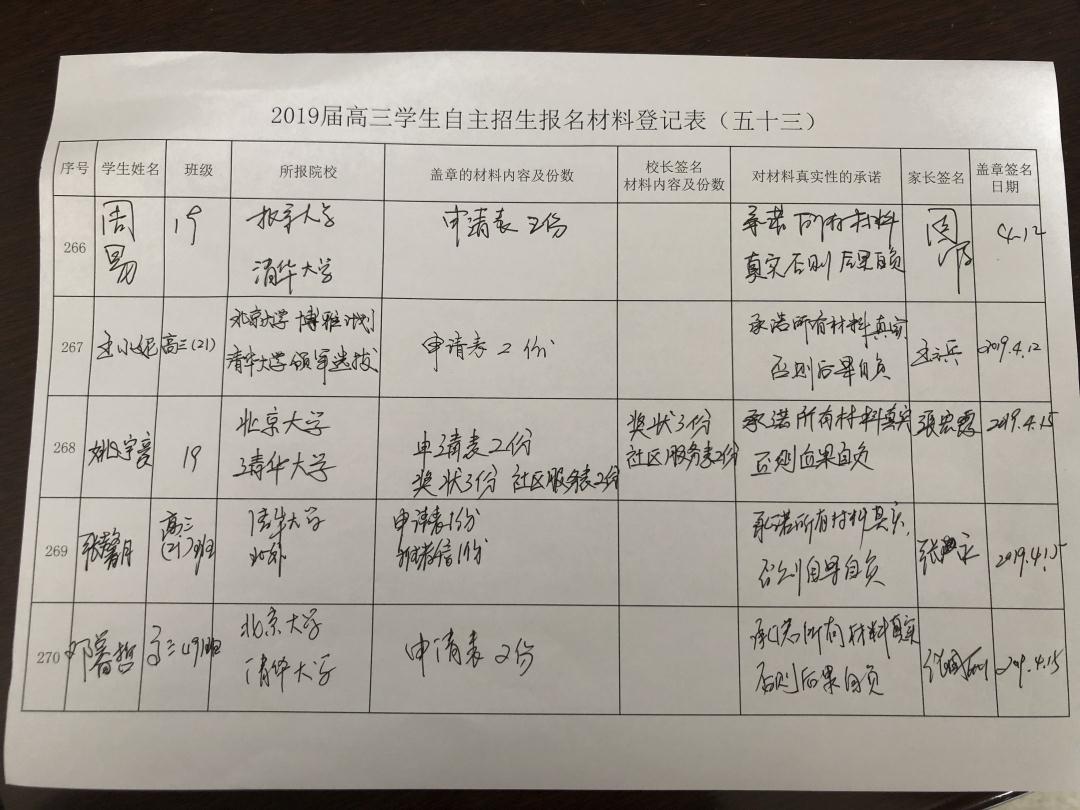 2019届高三学生自主招生报名材料登记表（五十三）
序号 学生姓名 班级 所报院校 盖章的材料内容及份数 校长签名 材料内容及份数 对材料真实性的承诺 家长签名 盖章签名日期
266 周易 19 大学 申请表 2份 承诺所有材料 4.12
清华大学 真实否则后果自负
267 高三(21) 北京大学 博雅计划 申请表 2份 承诺所有材料真实 2019.4.12
清华大学领军选拔 否则后果自负
268 姚宇亭 19 北京大学 申请表2份 奖状3份 承诺所有材料真实 张宏霞 2019.4.15
清华大学 奖状3份 社区服务表2份 社区服务表2份 否则后果自负
269 张馨月 高三(21)班 清华大学 申请表1份 承诺所有材料真实 张 2019.4.15
北外 推荐信1份 否则自负
270 邓睿哲 高三(19)班 北京大学 申请表 2份 承诺所有材料真实 2019.4.15
清华大学 否则后果自负